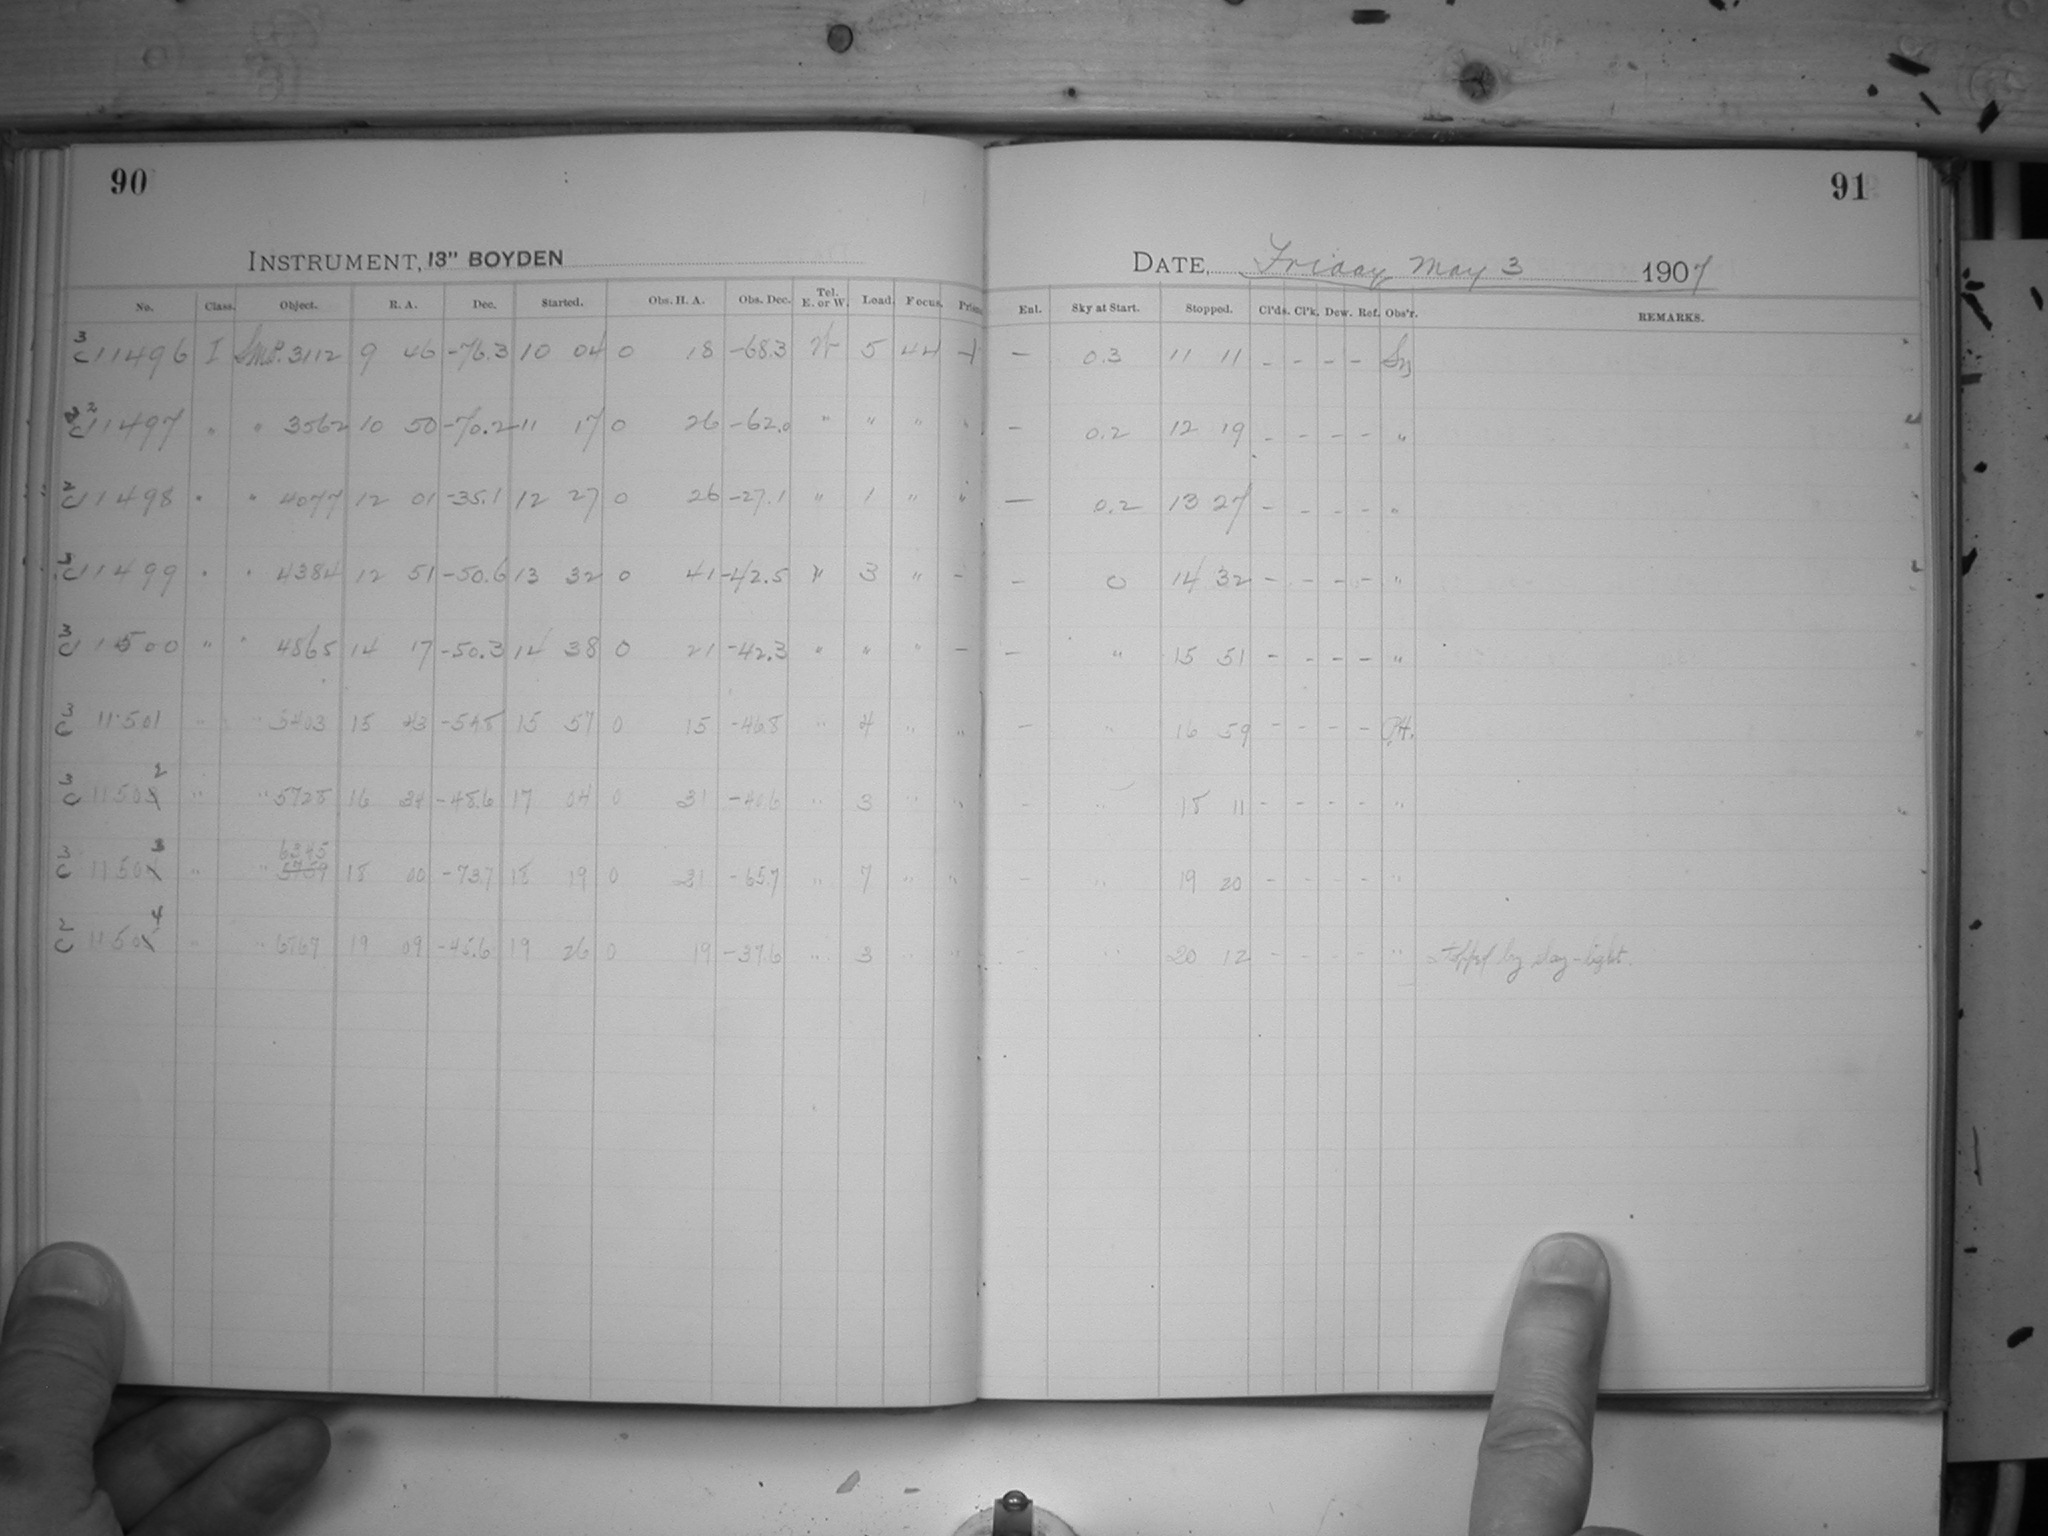 90
INSTRUMENT, 13" BOYDEN
No. Class. Object. R. A. Dec. Started. Obs. H. A. Obs. Dec. Tel. E. or W. Load. Focus.
3 C 11496 I 3112 9 46 -76.3 10 04 0 18 -68.3 W 5 44
C 11497 " " 3562 10 50 -70.2 11 17 0 26 -62.0 " " " "
2 C 11498 " " 4077 12 01 -35.1 12 27 0 26 -27.1 " 1 " "
C 11499 " " 4384 12 51 -50.6 13 32 0 41 -42.5 " 3 " -
3 C 11500 " " 4865 14 17 -50.3 14 38 0 21 -42.3 " " " -
3 C 11501 " " 5403 15 43 -54.8 15 57 0 15 -46.8 " 4 " "
2
3 C 1150 " " 5728 16 34 -48.6 17 04 0 31 -40.6 " 3 " "
6345
3 C 1150 " " 18 00 -73.7 18 19 0 -65.7 " 7 " "
4
2 C 1150 " " 6767 19 09 -45.6 19 26 0 19 -37.6 " 3 " "
91
DATE, Friday May 3 1907
Enl. Sky at Start. Stopped. Cl'ds. Cl'k. Dew. Ref. Obs'r. REMARKS.
- 0.3 11 11 - - - -
- 0.2 12 19 - - - - "
- 0.2 13 27 - - - - "
- 0 14 32 - - - - "
- " 15 51 - - - - "
- " 16 59 - - - -
- " 18 11 - - - - "
- " 19 20 - - - - "
- " 20 12 - - - - " stopped by day-light.